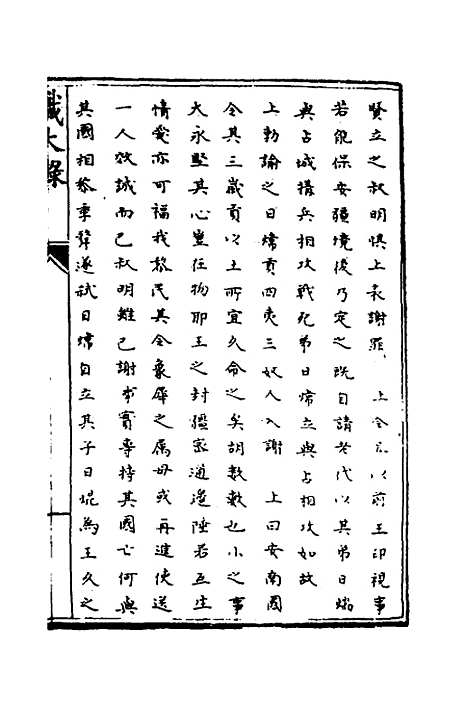 賢立之叔明惧上表謝罪　上令且以前王印視事
若能保安疆境後乃定之既自請老代以其弟日煓
與占城搆兵相攻戰死弟日煒立與占相攻如故
上勅諭之日煒貢四夷三奴人入謝　上曰安南國
令其三歲貢以土所宜久命之矣胡數數也小之事
大永堅其心豈在物耶王之封疆密通邊陲若互生
情愛亦可福我黎民其令象犀之屬毋或再進使送
一人效誠而已叔明雖已謝事實專持其國亡何與
其國相黎季犛遂弒日煒自立其子日焜為王久之
識大錄